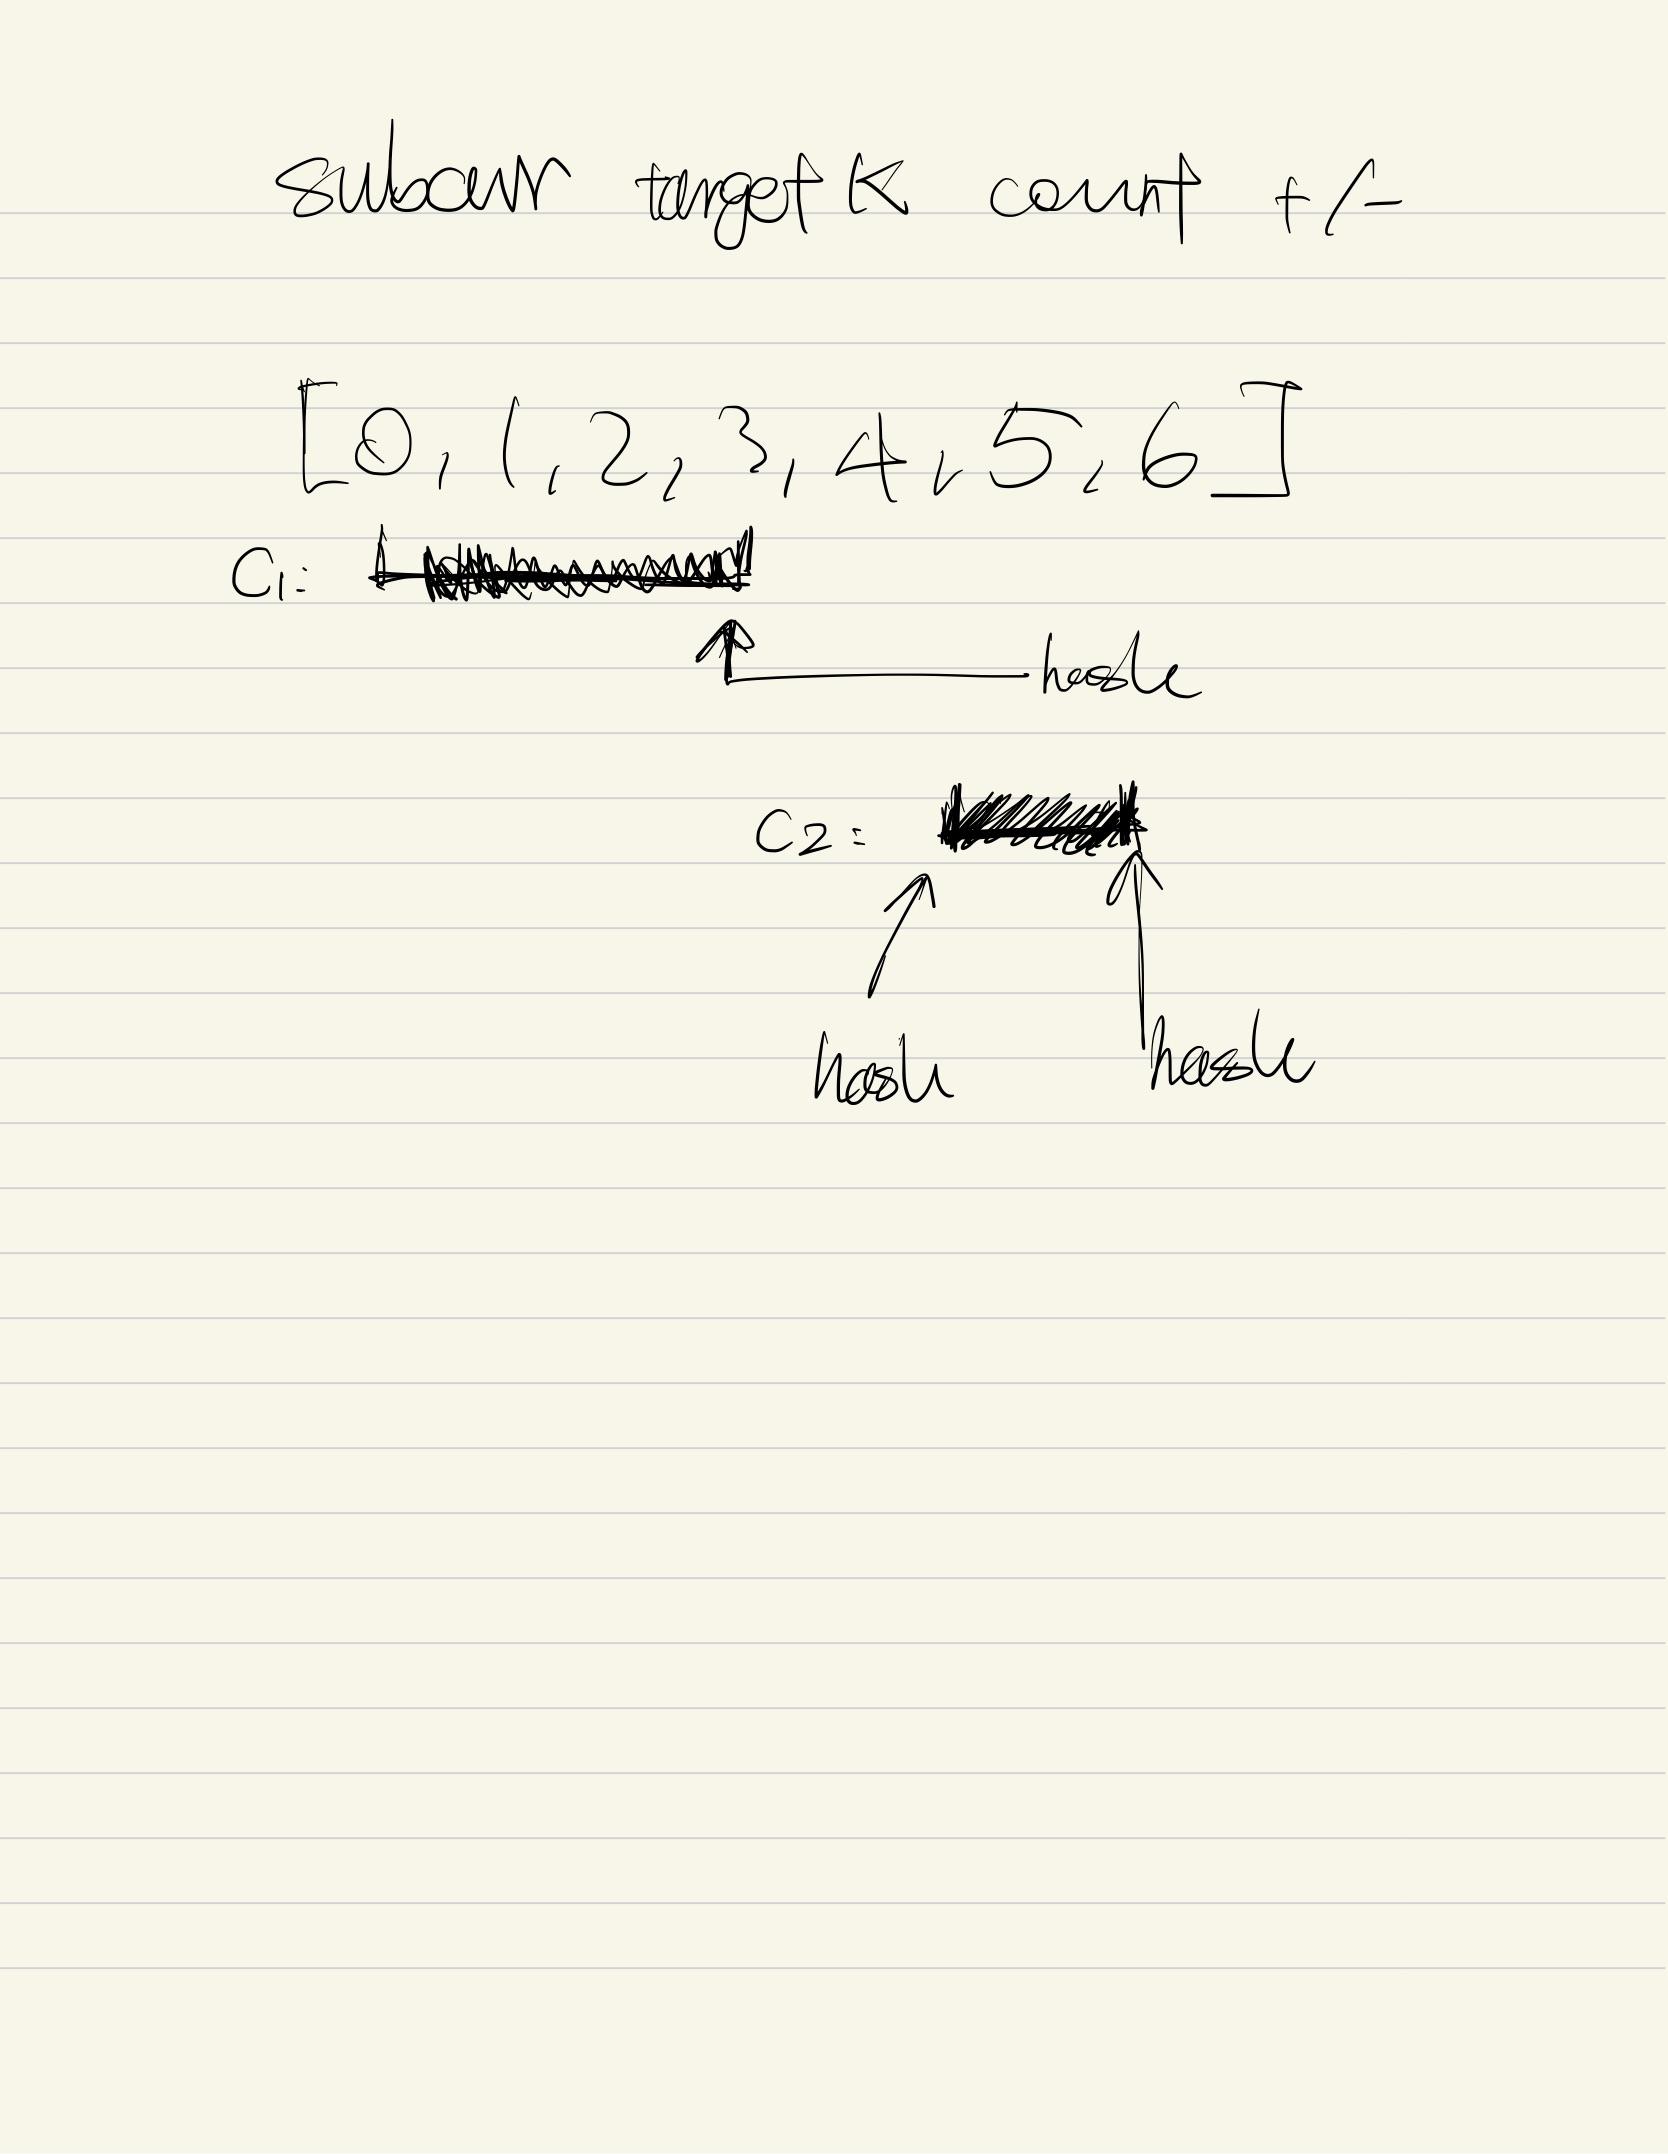 subarr target K count +/-
[0, 1, 2, 3, 4, 5, 6]
C1:
hash
C2:
hash hash